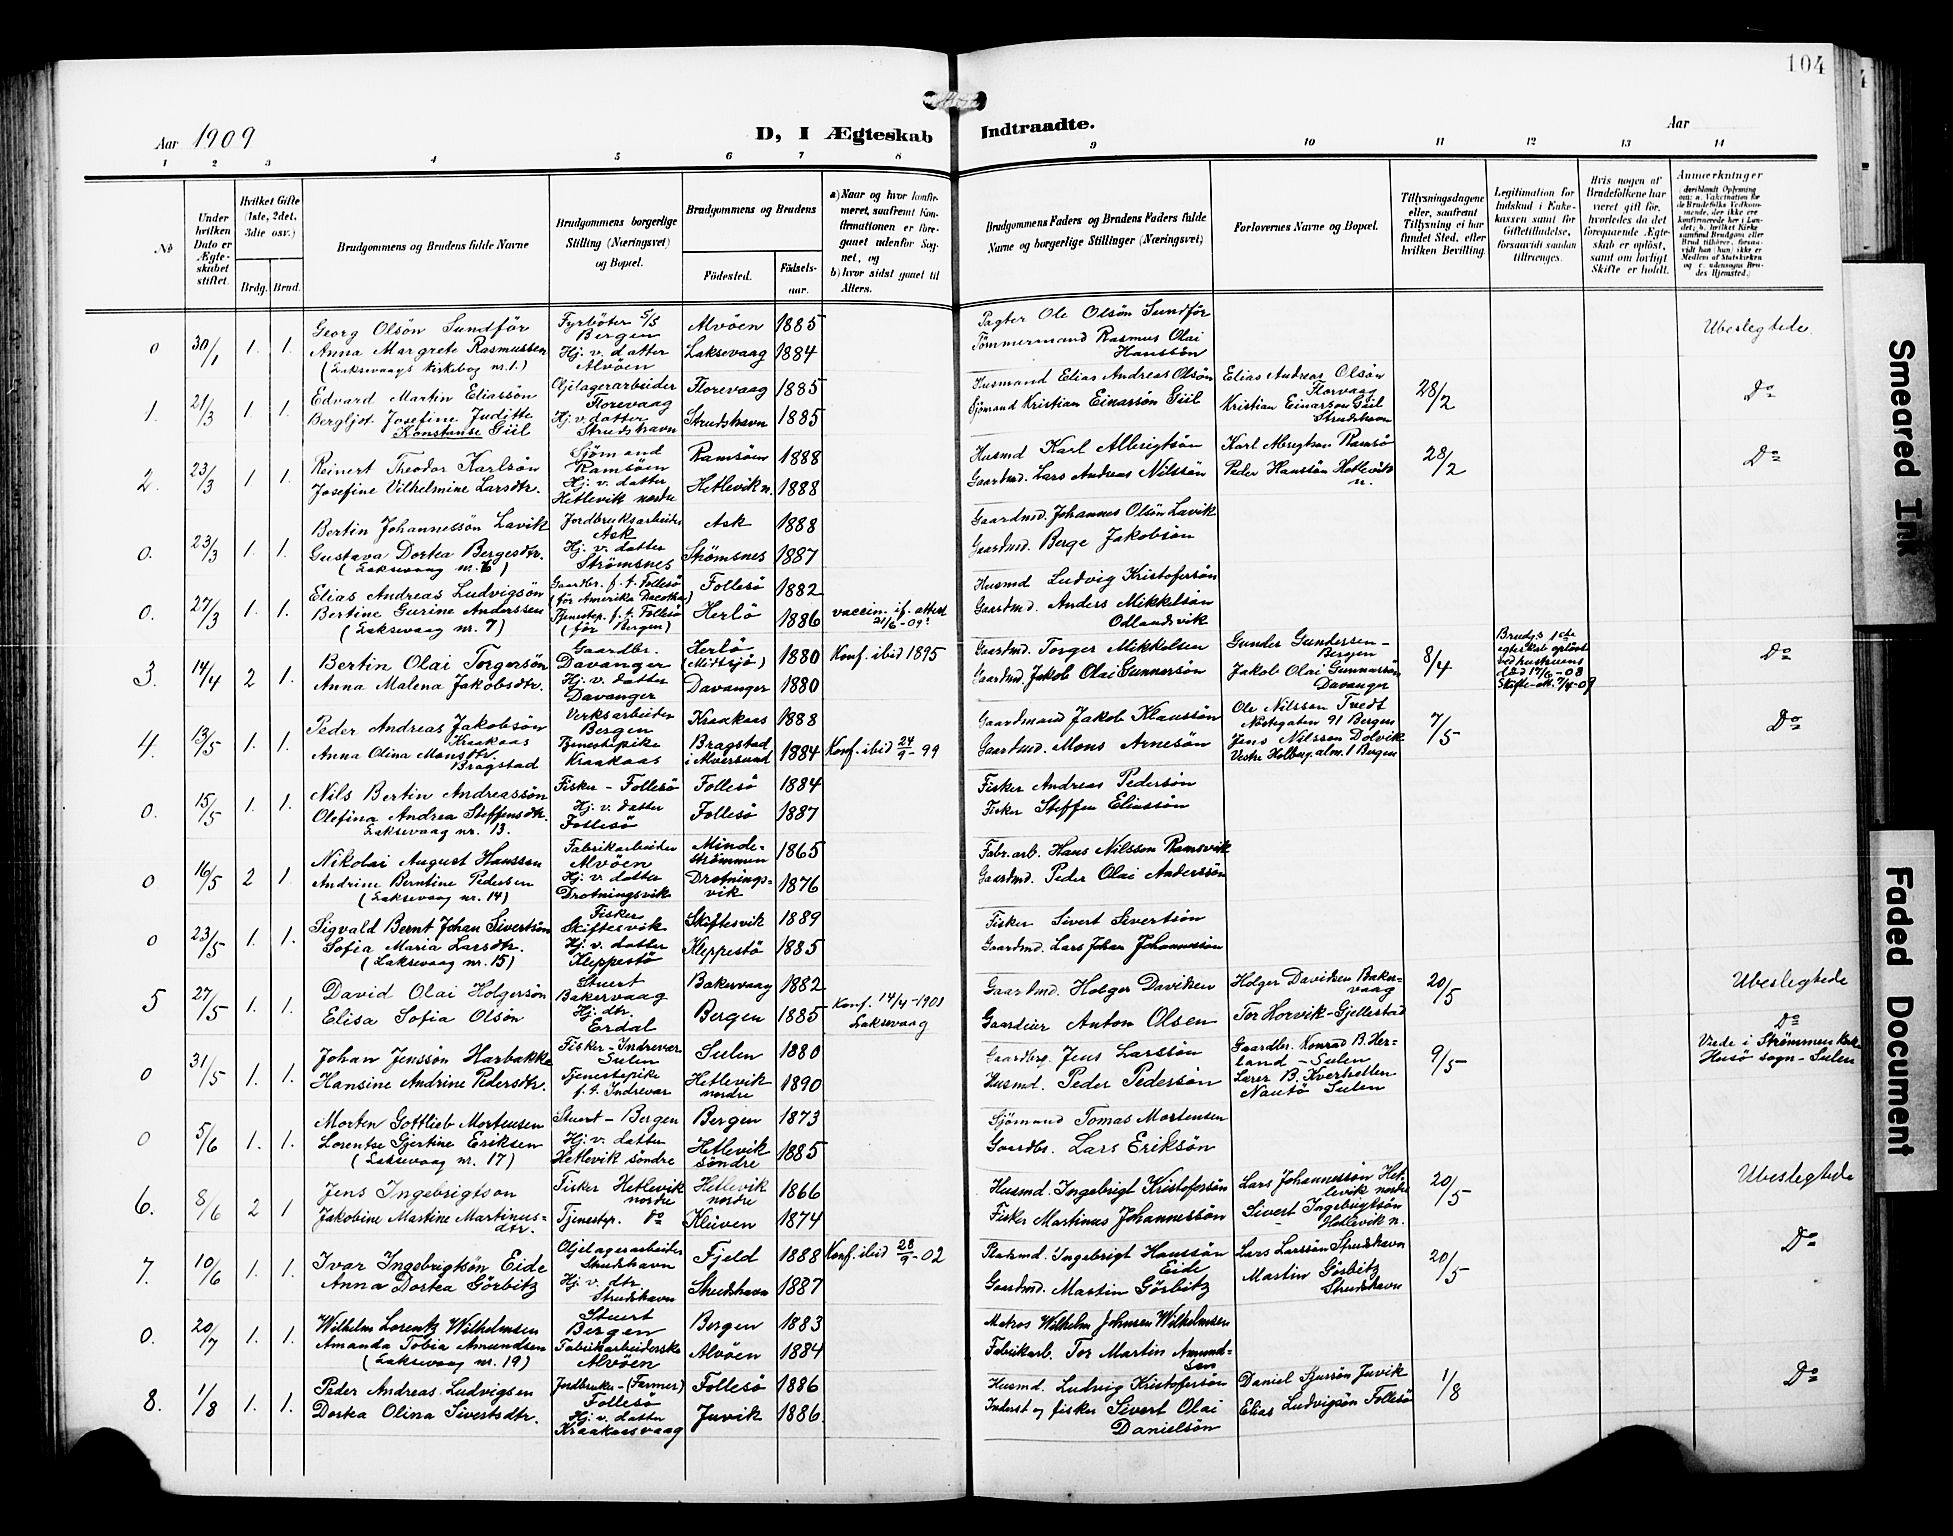 104
Aar 1909
D, I Ægteskab Indtraadte.
Aar
1 2 3 4 5 6 7 8 9 10 11 12 13 14
No
Under hvilken Dato er Ægteskabet stiftet.
Hvilket Gifte (1ste, 2det, 3die osv.)
Brdg. Brud.
Brudgommens og Brudens fulde Navne
Brudgommens borgerlige Stilling (Næringsvei) og Bopæl.
Brudgommens og Brudens
Födested.
Födsels-aar.
a) Naar og hvor konfirmeret, saafremt Konfirmationen er foregaaet udenfor Sognet, og
b) hvor sidst gaaet til Alters.
Brudgommens Faders og Brudens Faders fulde Navne og borgerlige Stillinger (Næringsvei)
Forlovernes Navne og Bopæl.
Tillysningsdagene eller, saafremt Tillysning ei har fundet Sted, efter hvilken Bevilling.
Legitimation for Indskud i Enkekassen samt for Giftetilladelse, forsaavidt saadan tiltrænges.
Hvis nogen af Brudefolkene har været gift før, hvorledes da det foregaaende Ægteskab er opløst, samt om lovligt Skifte er holdt.
Anmærkninger
0 30/1 1. 1. Georg Olsön Sundför Fyrböter S/S Bergen Alvöen 1885 Pagter Ole Olsön Sundför Ubeslegtede
Anna Margrete Rasmussen Hj. v. datter Alvöen Laksevaag 1884 Tömmermand Rasmus Olai Hanssön
(Laksevaags kirkebog nr. 1.)
1. 21/3 1. 1. Edvard Martin Eliassön Oljelagerarbeider Florevaag Florevaag 1885 Husmand Elias Andreas Olsön Elias Andreas Olsön Florvaag 28/2 Do
Bergljot Josefine Juditte Konstanse Giil Hj. v. datter Strudshavn Strudshavn 1885 Sjömand Kristian Einarssön Giil Kristian Einarsson Giil Strudshavn
2. 23/3 1 1. Reinert Theodor Karlsön Sjömand Ramsöen Ramsöen 1888 Husmd Karl Albrigtsön Karl Albregtson Ramsö 28/2 Do
Josefine Vilhelmine Larsdtr. Hj. v. datter Hetlevik nordre Hetlevik n. 1888 Gaardmd. Lars Andreas Nilssön Peder Hanssön Hetlevik n.
0. 23/3 1. 1. Bertin Johannessön Lavik Jordbruksarbeider Ask Ask 1888 Gaardmd. Johannes Olsön Lavik
Gustava Dortea Bergesdtr. Hj. v. datter Strömsnes Strömsnes 1887 Gaardmd. Berge Jakobsön
(Laksevaag nr. 6)
0. 27/3 1. 1. Elias Andreas Ludvigsön Gaardbr. f. t. Follesö (för Amerika Dacotha) Follesö 1882 Husmd Ludvig Kristofersön
Bertine Gurine Anderssen Tjenestep. f. t. Follesö (för Bergen) Herlö 1886 vaccin. if. attest 21/6-09. Gaardmd. Anders Mikkelsön Odlandsvik
(Laksevaag nr. 7)
3. 14/4 2 1. Bertin Olai Torgersön Gaardbr. Davanger Herlö (Midtsjö) 1880 Konf. ibid 1895 Gaardmd. Torger Mikkelsen Gunder Gundersen - Bergen 8/4 Brudgs 1ste egteskab oplöst ved hustruens död 17/6-08 Skifte-att. 7/4-09 Do
Anna Malena Jakobsdtr. Hj. v. datter Davanger Davanger 1880 Gaardmd. Jakob Olai Gunnarsön Jakob Olai Gunnarsön Davanger
4. 13/5 1. 1. Peder Andreas Jakobsön Kraakaas Verksarbeider Bergen Kraakaas 1888 Gaardmand Jakob Klaussön Ole Nilsson Tvedt Nöstegaten 91 Bergen 7/5 Do
Anna Olina Monsdtr. Bragstad Tjenestepike Kraakaas Bragstad i Alversund 1884 Konf. ibid 24/9-99 Gaardmd. Mons Arnesön Jens Nilsson Dolvik Vestre Holberg.alm. 1 Bergen
0. 15/5 1. 1. Nils Bertin Andreassön Fisker - Follesö Follesö 1884 Fisker Andreas Pedersön
Olefina Andrea Steffensdtr. Hj. v. datter Follesö Follesö 1887 Fisker Steffen Eliassön
Laksevaag nr. 13.
0 16/5 2 1. Nikolai August Hanssen Fabrikarbeider Alvöen Minde-strömmen 1865 Fabr.arb. Hans Nilsson Ramsvik
Andrine Berntine Pedersen Hj. v. datter Drotningsvik Drotnings-vik 1876 Gaardmd. Peder Olai Anderssön
(Laksevaag nr. 14)
0 23/5 1. 1. Sigvald Bernt Johan Sivertsön Fisker Skiftesvik Skiftesvik 1889 Fisker Sivert Sivertsön
Sofia Maria Larsdtr. Hj. v. datter Kleppestö Kleppestö 1885 Gaardmd. Lars Johan Johannessön
(Laksevaag nr. 15)
5 27/5 1. 1. David Olai Holgersön Stuert Bakervaag Bakervaag 1882 Gaardmd. Holger Daviken Holger Davidsen Baker-vaag 20/5 Ubeslegtede
Elisa Sofia Olsön Hj. dtr. Erdal Bergen 1885 Konf. 14/4-1901 Laksevaag Gaardeier Anton Olsen Tor Horvik - Gjellestad
0 31/5 1. 1. Johan Jenssön Harbakke Fisker - Indrevær Sulen Sulen 1880 Gaardbr. Jens Larssön Gaardbr. Konrad B. Her-land - Sulen 9/5 Do
Hansine Andrine Pedersdtr. Tjenestepike f. t. Indrevær Hetlevik nordre 1890 Husmd. Peder Pedersön Lærer B. Kverhellen Nautö Sulen Viede i Strömmen kirke Husö sogn - Sulen
0 5/6 1. 1. Morten Gottlieb Mortensen Stuert - Bergen Bergen 1873 Sjömand Tomas Mortensen
Lorentse Gjertine Eriksen Hj. v. datter Hetlevik söndre Hetlevik söndre 1885 Gaardbr. Lars Eriksön
(Laksevaag nr. 17)
6. 8/6 2 1 Jens Ingebrigtson Fisker Hetlevik nordre Hetlevik nordre 1866 Husmd. Ingebrigt Kristofersön Lars Johannessön Het-levik nordre 20/5 Ubeslegtede
Jakobine Martine Martinus-dtr. Tjenestep. Do Klüven 1874 Fisker Martinus Johannessön Sivert Ingebrigtsön Hetlevik n.
7. 10/6 1. 1. Ivar Ingebrigtsön Eide Oljelagerarbeider Strudshavn Fjeld 1888 Konf. ibid 28/9-02 Pladsmd. Ingebrigt Hanssön Eide Lars Larssön Strudshavn 20/5 Do
Anna Dortea Görbitz Hj. v. dtr. Strudshavn Strudshavn 1887 Gaardmd. Martin Görbitz Martin Görbitz Strudshavn
0. 20/7 1. 1. Wilhelm Lorentz Wilhelmsen Stuert Bergen Bergen 1883 Matros Wilhelm Johnsen Wilhelmsen
Amanda Tobia Amundsen Fabrikarbeiderske Alvöen Alvöen 1884 Fabrikarb. Tor Martin Amund-sen
(Laksevaag nr. 19)
8. 1/8 1. 1. Peder Andreas Ludvigsen Jordbruker - (Farmer) Follesö Follesö 1886 Husmd. Ludvig Kristofersön Daniel Sjursön Juvik 1/8 Do
Dortea Olina Sivertsdtr. Hj. v. datter Kraakaasvaag Juvik 1886 Inderst og fisker Sivert Olai Danielsön Elias Ludvigsön Follesö
Smeared Ink
Faded Document